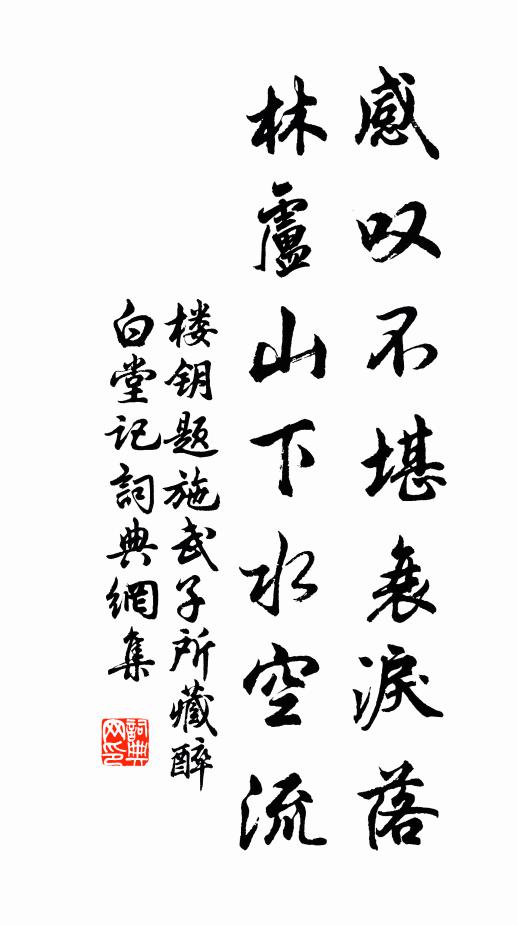 感叹不堪衰淚落
林盧山下水空流
楼钥题施武子所藏醉
白堂记詞典網集
詞典
网印